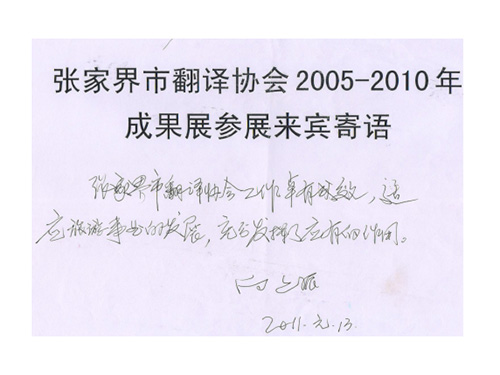 张家界市翻译协会2005-2010年
成果展参展来宾寄语
张家界市翻译协会工作卓有成效，适
应旅游事业的发展，充分发挥了应有的作用。
2011.元.13.